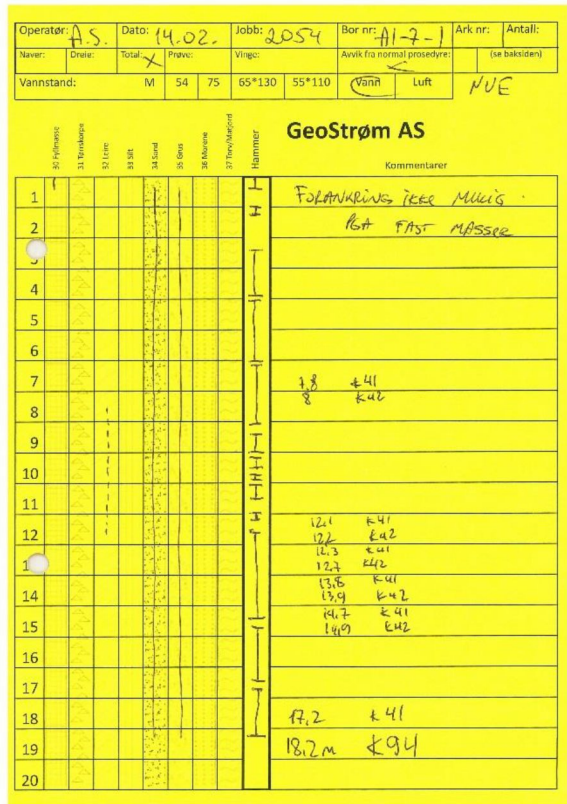 Operatør: A.S. Dato: 14.02. Jobb: 2054 Bor nr: A1-7-1 Ark nr: Antall:
Naver: Dreie: Total: X Prøve: Vinge: Avvik fra normal prosedyre: (se baksiden)
Vannstand: M 54 75 65*130 55*110 Vann Luft
30 Fyllmasse
31 Tørrskorpe
32 Leire
33 Silt
34 Sand
35 Grus
36 Morene
37 Torv/Matjord
Hammer
GeoStrøm AS
Kommentarer
1 FORANKRING IKKE MULIG.
2 PGA FAST MASSER
4
5
6
7 7,8 K41
8 K42
8
9
10
11
12 12,1 K41
12,2 K42
12,3 K41
12,7 K42
13,8 K41
14 13,9 K42
14,7 K41
15 14,9 K42
16
17
18 17,2 K41
19 18,2m K94
20